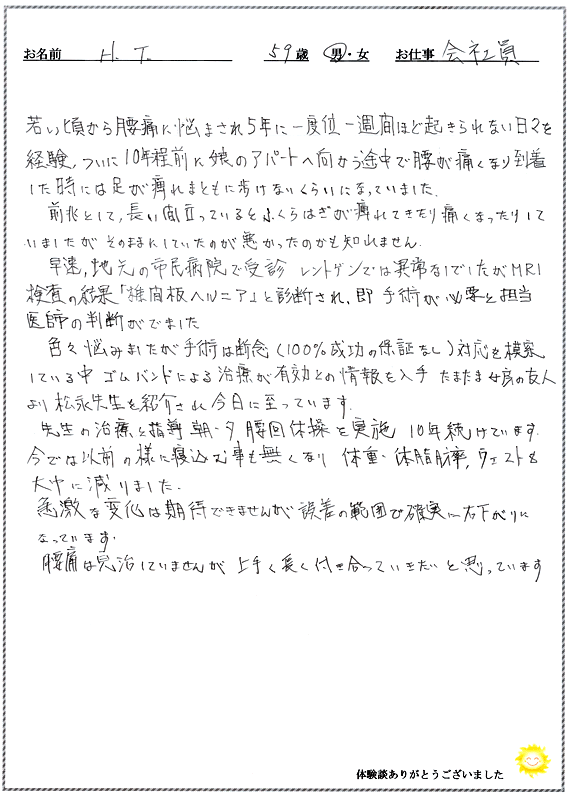 お名前 H. T. 59歳 男・女 お仕事 会社員
若い頃から腰痛に悩まされ5年に一度位一週間ほど起きられない日々を
経験、ついに10年程前に娘のアパートへ向かう途中で腰が痛くなり到着
した時には足が痺れまともに歩けないくらいになっていました。
前兆として、長い間立っているとふくらはぎが痺れてきたり痛くなったりして
いましたが そのままにしていたのが悪かったのかも知れません。
早速、地元の市民病院で受診 レントゲンでは異常なしでしたがMRI
検査の結果「椎間板ヘルニア」と診断され、即 手術が必要と担当
医師の判断がでました
色々悩みましたが手術は断念(100%成功の保証なし)対応を模索
している中 ゴムバンドによる治療が有効との情報を入手 たまたま女房の友人
より松永先生を紹介され今日に至っています。
先生の治療と指導 朝・夕 腰回体操を実施 10年続けています。
今では以前の様に寝込む事も無くなり 体重・体脂肪率、ウェストも
大巾に減りました。
急激な変化は期待できませんが誤差の範囲で確実に右下がりに
なっています。
腰痛は完治していませんが 上手く長く付き合っていきたいと思っています
体験談ありがとうございました